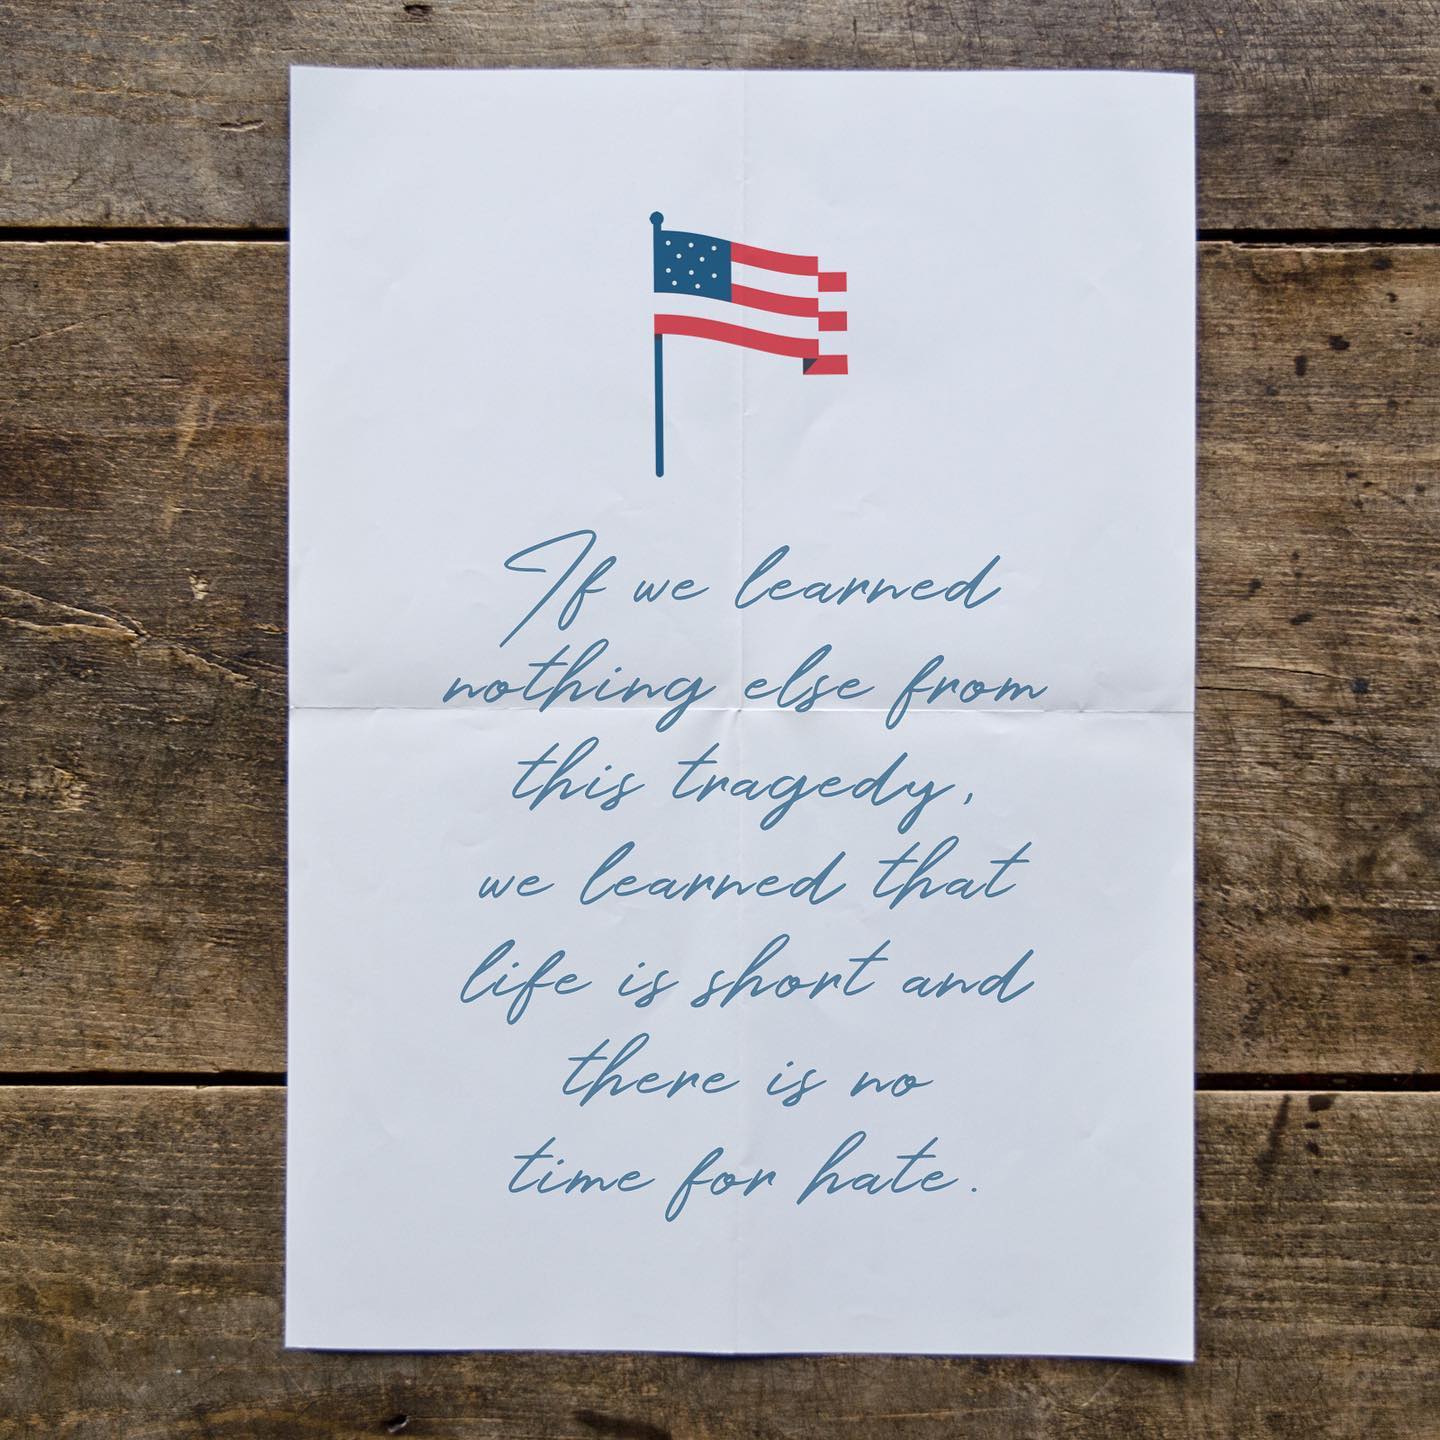 If we learned
nothing else from
this tragedy,
we learned that
life is short and
there is no
time for hate.